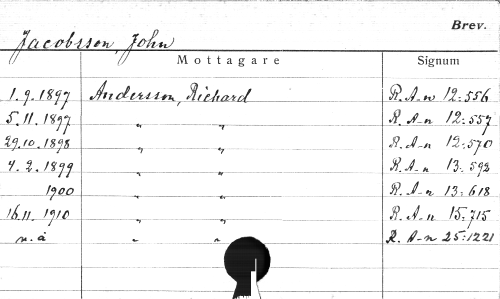 Brev.
Jacobsson, John
Mottagare Signum
1.9.1897 Andersson, Richard R.A-n 12:556
5.11.1897 " " R.A-n 12:557
29.10.1898 " " R.A-n 12:570
4.2.1899 " " R.A-n 13:592
1900 " " R.A-n 13:618
16.11.1910 " " R.A-n 15:715
n.å " " R.A-n 25:1221